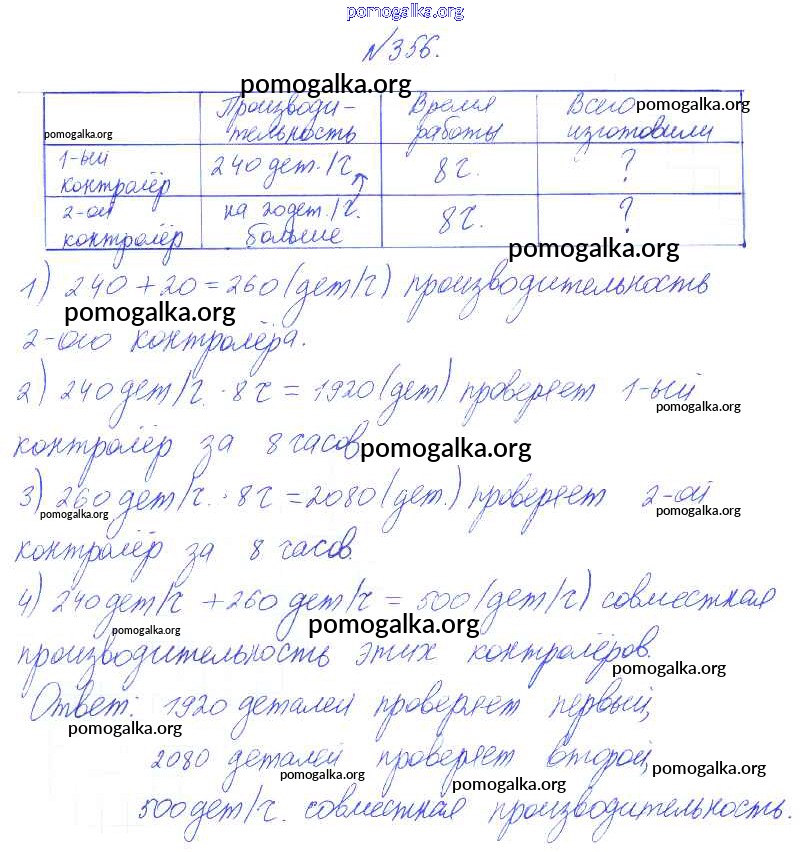 pomogalka.org
№356.
pomogalka.org
Производи- Время Всего pomogalka.org
pomogalka.org тельность работы изготовили
1-ый контролёр 240 дет./ч. 8 ч. ?
2-ой контролёр на 20 дет./ч. больше 8 ч. ?
pomogalka.org
1) 240 + 20 = 260 (дет/ч) производительность
pomogalka.org
2-ого контролёра.
2) 240 дет/ч. · 8 ч = 1920 (дет) проверяет 1-ый
pomogalka.org
контролёр за 8 часов pomogalka.org
3) 260 дет/ч. · 8 ч = 2080 (дет.) проверяет 2-ой
pomogalka.org pomogalka.org
контролёр за 8 часов.
4) 240 дет/ч + 260 дет/ч = 500 (дет/ч) совместная
pomogalka.org pomogalka.org
производительность этих контролёров.
pomogalka.org
Ответ: 1920 деталей проверяет первый,
pomogalka.org
2080 деталей проверяет второй,
pomogalka.org pomogalka.org pomogalka.org
500 дет/ч. совместная производительность.